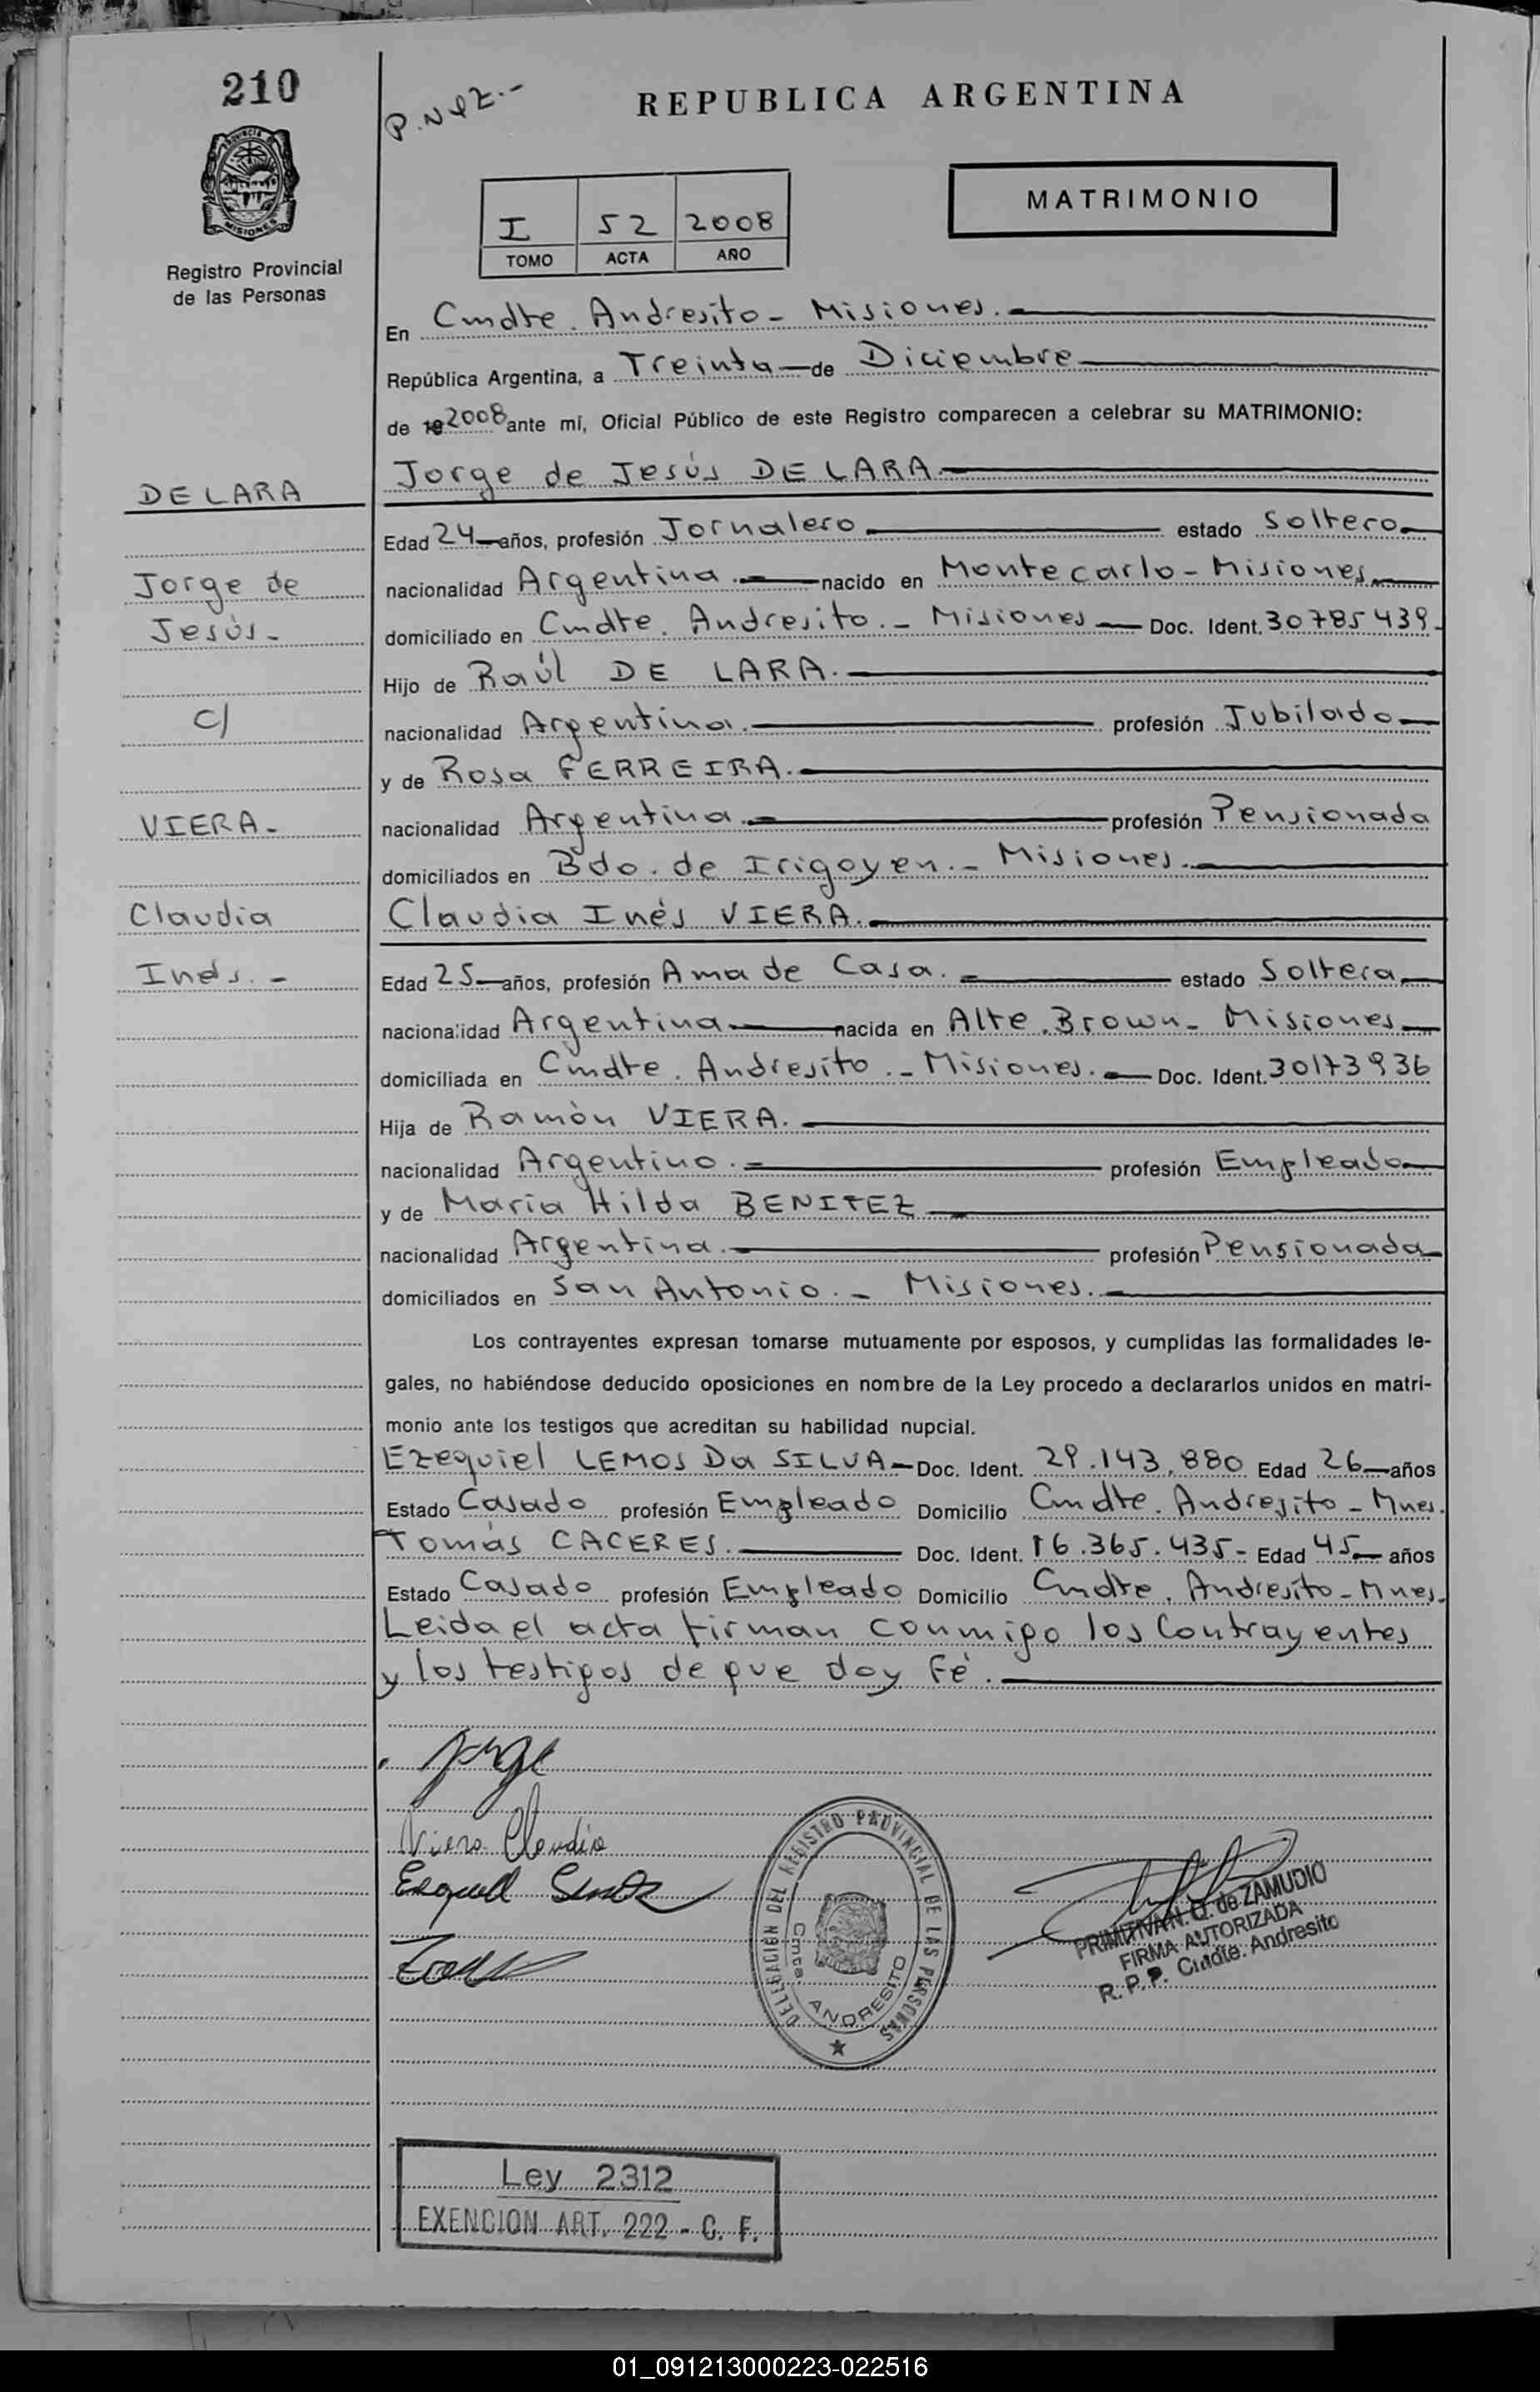 210
P.N y Z.-
REPUBLICA ARGENTINA
PROVINCIA
MISIONES
Registro Provincial
de las Personas
MATRIMONIO
I 52 2008
TOMO ACTA AÑO
En Cmdte. Andresito - Misiones.
República Argentina, a Treinta de Diciembre
de 19 2008 ante mí, Oficial Público de este Registro comparecen a celebrar su MATRIMONIO:
DE LARA
Jorge de Jesús DE LARA
Edad 24 años, profesión Jornalero estado Soltero
Jorge de
nacionalidad Argentina. nacido en Montecarlo - Misiones
Jesús -
domiciliado en Cmdte. Andresito. - Misiones Doc. Ident. 30785439.
Hijo de Raúl DE LARA.
c/
nacionalidad Argentina. profesión Jubilado
y de Rosa FERREIRA.
VIERA -
nacionalidad Argentina. profesión Pensionada
domiciliados en Bdo. de Irigoyen. - Misiones.
Claudia
Claudia Inés VIERA.
Inés. -
Edad 25 años, profesión Ama de Casa. estado Soltera
nacionalidad Argentina nacida en Alte. Brown - Misiones
domiciliada en Cmdte. Andresito. - Misiones. Doc. Ident. 30173936
Hija de Ramòn VIERA.
nacionalidad Argentino. profesión Empleado
y de María Hilda BENITEZ
nacionalidad Argentina. profesión Pensionada
domiciliados en San Antonio. - Misiones.
Los contrayentes expresan tomarse mutuamente por esposos, y cumplidas las formalidades le-
gales, no habiéndose deducido oposiciones en nombre de la Ley procedo a declararlos unidos en matri-
monio ante los testigos que acreditan su habilidad nupcial.
Ezequiel LEMOS Da SILVA Doc. Ident. 29.143.880 Edad 26 años
Estado Casado profesión Empleado Domicilio Cmdte. Andresito - Mnes.
Tomás CACERES. Doc. Ident. 16.365.435- Edad 45 años
Estado Casado profesión Empleado Domicilio Cmdte. Andresito - Mnes.
Leida el acta firman conmigo los Contrayentes
y los testigos de que doy Fé.
Jorge
Viera Claudia
DELEGACIÓN DEL REGISTRO PROVINCIAL DE LAS PERSONAS
Cmte. ANDRESITO
PRIMITIVA N. G. de ZAMUDIO
FIRMA AUTORIZADA
R. P. P. Cmdte. Andresito
Ley 2312
EXENCION ART. 222 - C. F.
01_091213000223-022516